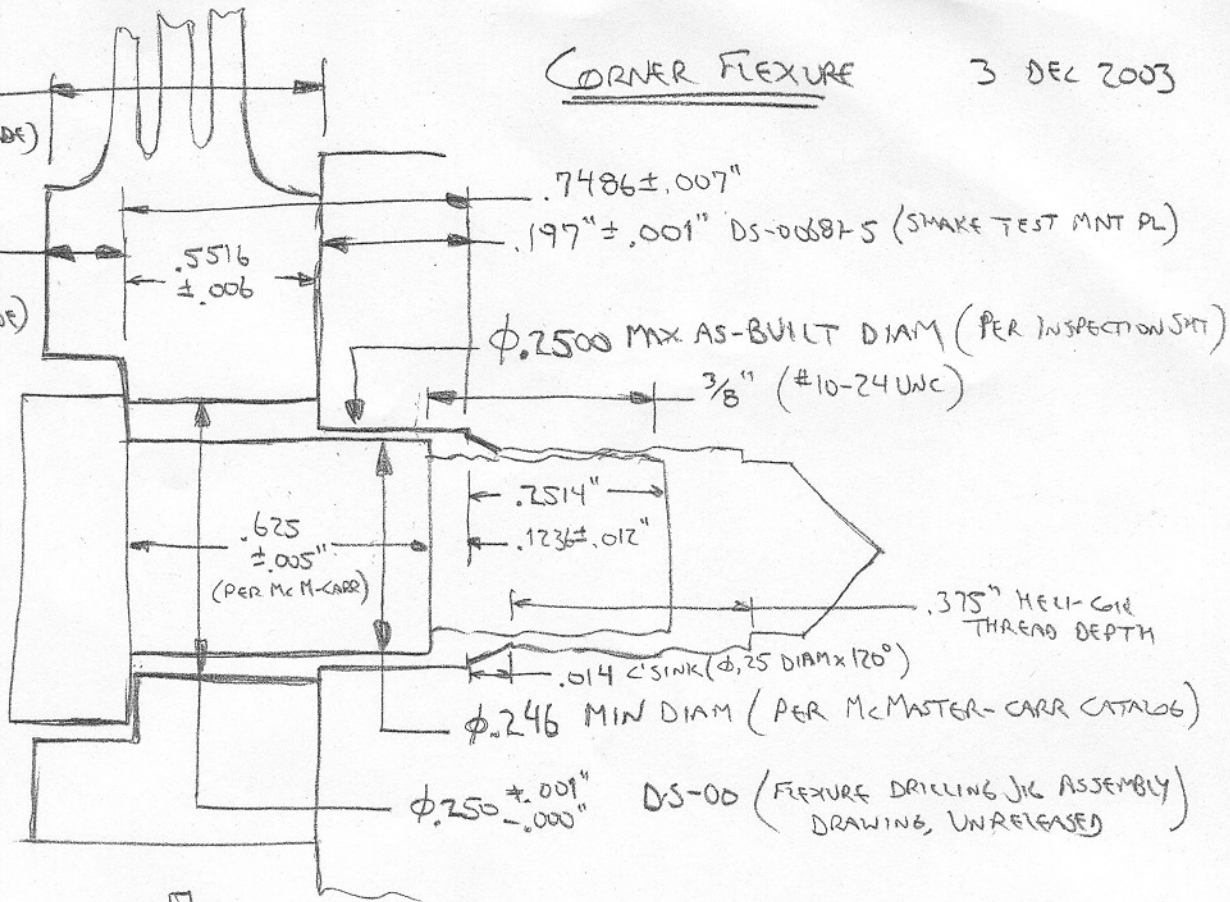 CORNER FLEXURE
3 DEC 2003
DE)
.7486±.007"
.197"±.001" DS-00687-5 (SHAKE TEST MNT PL)
.5516
±.006
DE)
Φ.2500 MAX AS-BUILT DIAM (PER INSPECTION SHT)
3/8" (#10-24 UNC)
.2514"
.625
±.005"
(PER McM-CARR)
.1236±.012"
.375" HELI-COIL
THREAD DEPTH
.014 C'SINK (Φ.25 DIAM x 120°)
Φ.246 MIN DIAM (PER McMASTER-CARR CATALOG)
Φ.250 +.001"
-.000"
DS-00 (FLEXURE DRILLING JIG ASSEMBLY
DRAWING, UNRELEASED)